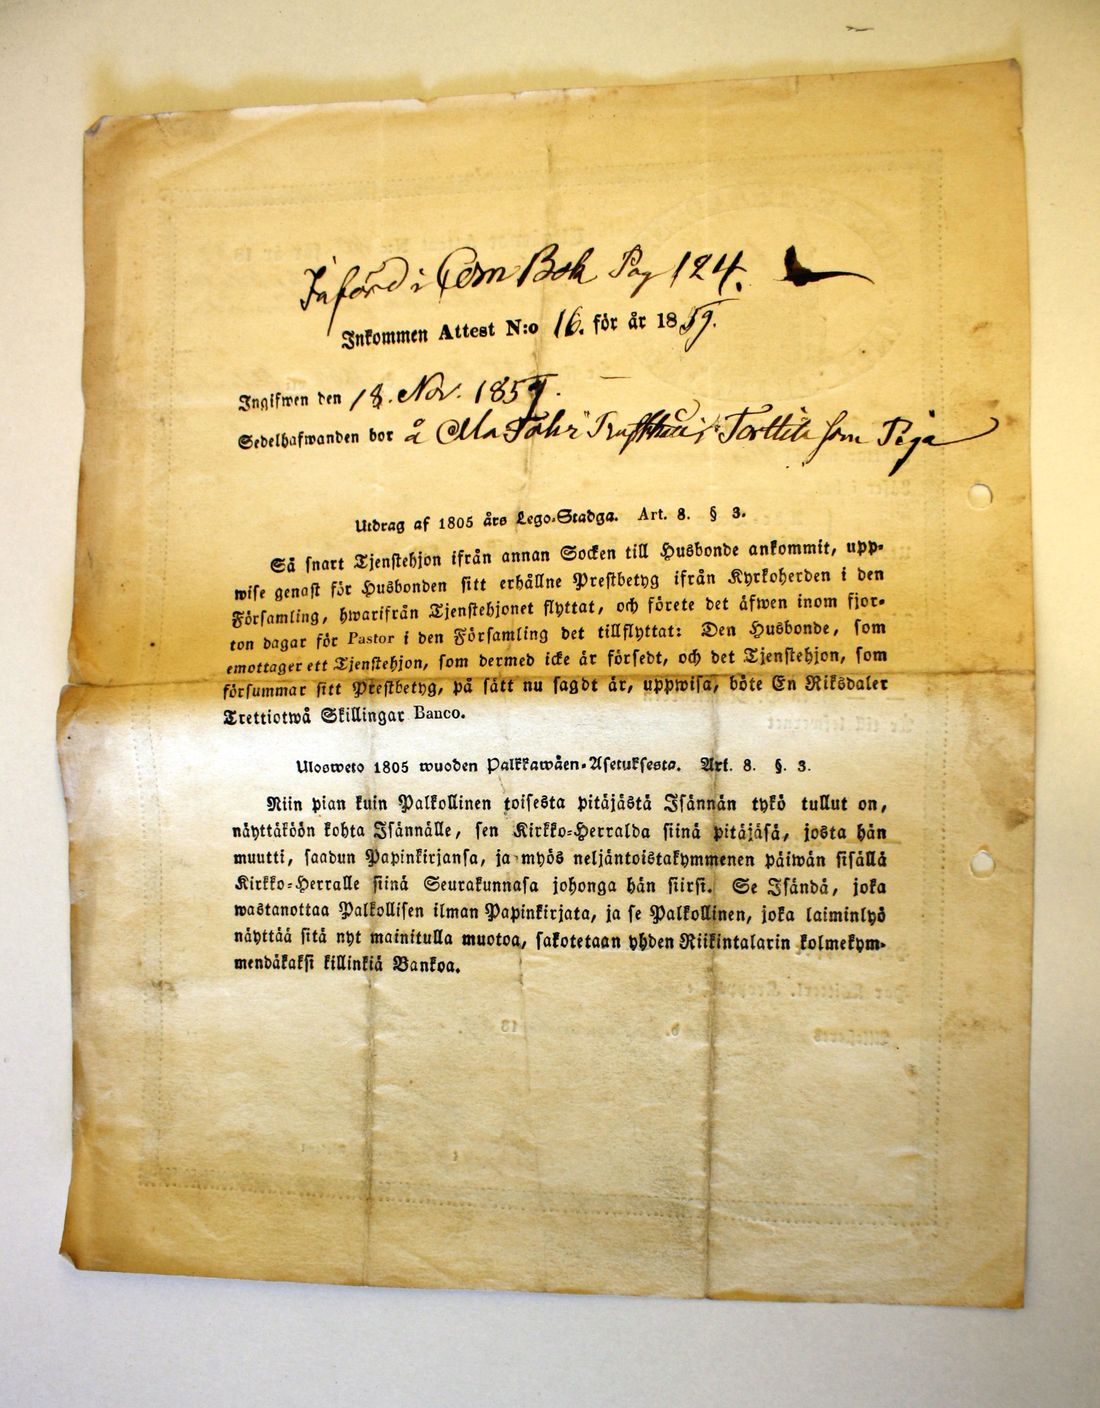 Införd i Com Bok Pag 124.
Inkommen Attest N:o 16. för år 1859.
Ingifwen den 18. Nov. 1859.
Sedelhafwanden bor å som Piga
Utdrag af 1805 års Lego-Stadga. Art. 8. § 3.
Så snart Tjenstehjon ifrån annan Socken till Husbonde ankommit, upp-
wise genast för Husbonden sitt erhållne Prestbetyg ifrån Kyrkoherden i den
Församling, hwarifrån Tjenstehjonet flyttat, och förete det äfwen inom fjor-
ton dagar för Pastor i den Församling det tillflyttat: Den Husbonde, som
emottager ett Tjenstehjon, som dermed icke är försedt, och det Tjenstehjon, som
försummar sitt Prestbetyg, på sätt nu sagdt är, uppwisa, böte En Riksdaler
Trettiotwå Skillingar Banco.
Ulosweto 1805 wuoden Palkkawäen-Asetuksesta. Art. 8. §. 3.
Niin pian kuin Palkollinen toisesta pitäjästä Isännän tykö tullut on,
näyttäköön kohta Isännälle, sen Kirkko-Herralda siinä pitäjäsä, josta hän
muutti, saadun Papinkirjansa, ja myös neljäntoistakymmenen päiwän sisällä
Kirkko-Herralle siinä Seurakunnasa johonga hän siirsi. Se Isändä, joka
wastanottaa Palkollisen ilman Papinkirjata, ja se Palkollinen, joka laiminlyö
näyttää sitä nyt mainitulla muotoa, sakotetaan yhden Riikintalarin kolmekym-
mendäkaksi killinkiä Bankoa.